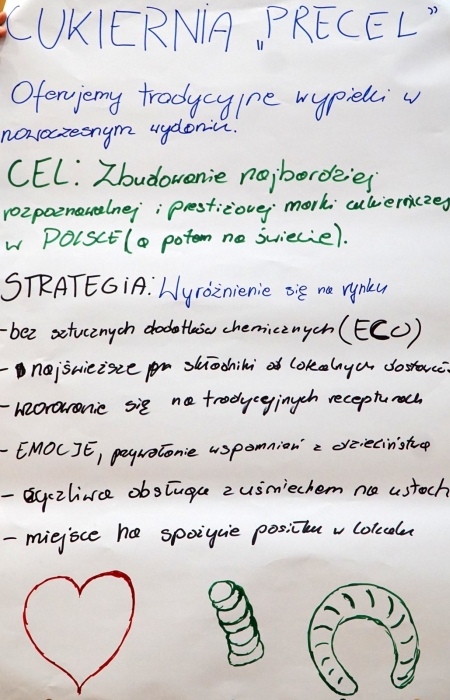 CUKIERNIA „PRECEL”
Oferujemy tradycyjne wypieki w
nowoczesnym wydaniu.
CEL: Zbudowanie najbardziej
rozpoznawalnej i prestiżowej marki cukierniczej
w POLSCE (a potem na świecie).
STRATEGIA: Wyróżnienie się na rynku
-bez sztucznych dodatków chemicznych (ECO)
- najświeższe składniki od lokalnych dostawców
- wzorowanie się na tradycyjnych recepturach
- EMOCJE, przywołanie wspomnień z dzieciństwa
- życzliwa obsługa z uśmiechem na ustach
- miejsce na spożycie posiłku w lokalu